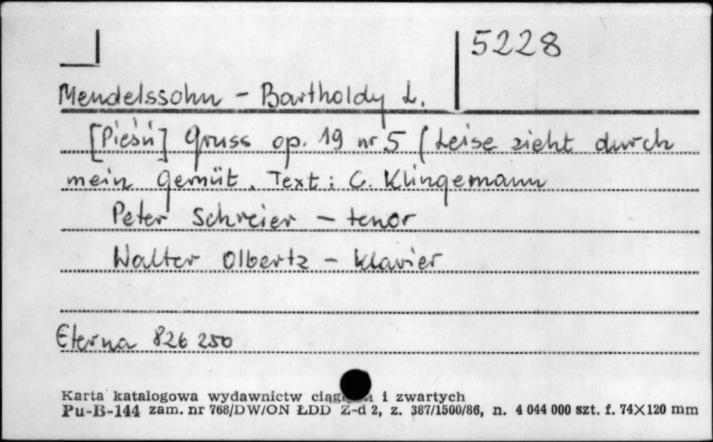 5228
Mendelssohn - Bartholdy L.
[Pieśń] Gruss op. 19 nr 5 (Leise zieht durch
mein Gemüt. Text: C. Klingemann
Peter Schreier - tenor
Walter Olbertz - klavier
Eterna 826 250
Karta katalogowa wydawnictw i zwartych
Pu-B-144 zam. nr 768/DW/ON ŁDD Z-d 2, z. 387/1500/86, n. 4 044 000 szt. f. 74×120 mm